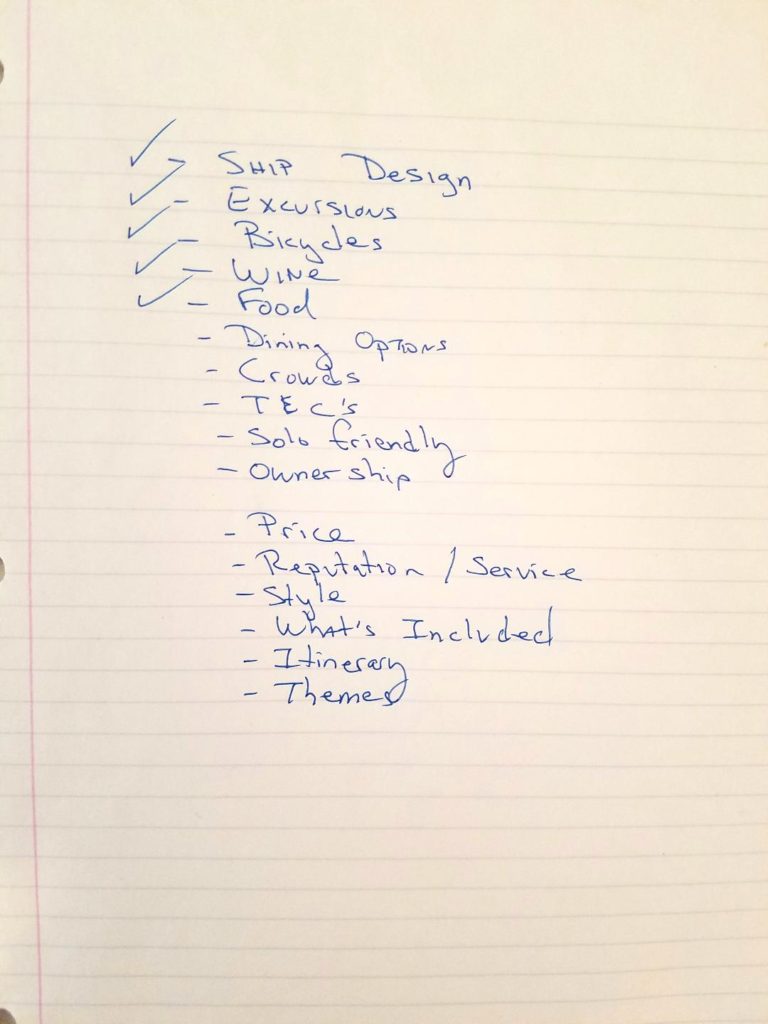 ✓ - Ship Design
✓ - Excursions
✓ - Bicycles
✓ - Wine
✓ - Food
- Dining Options
- Crowds
- TEC's
- Solo friendly
- Ownership
- Price
- Reputation / Service
- Style
- What's Included
- Itinerary
- Themes